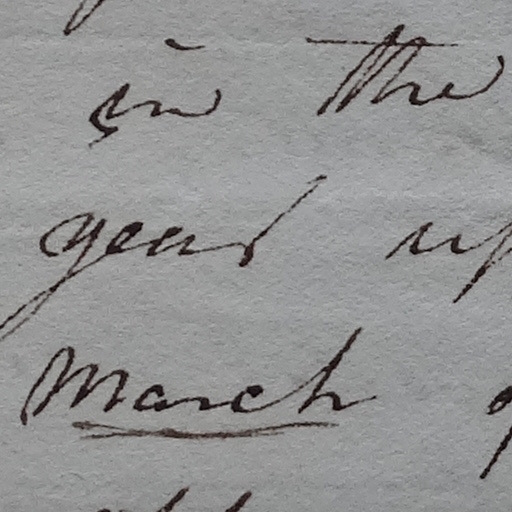 in the
year
March